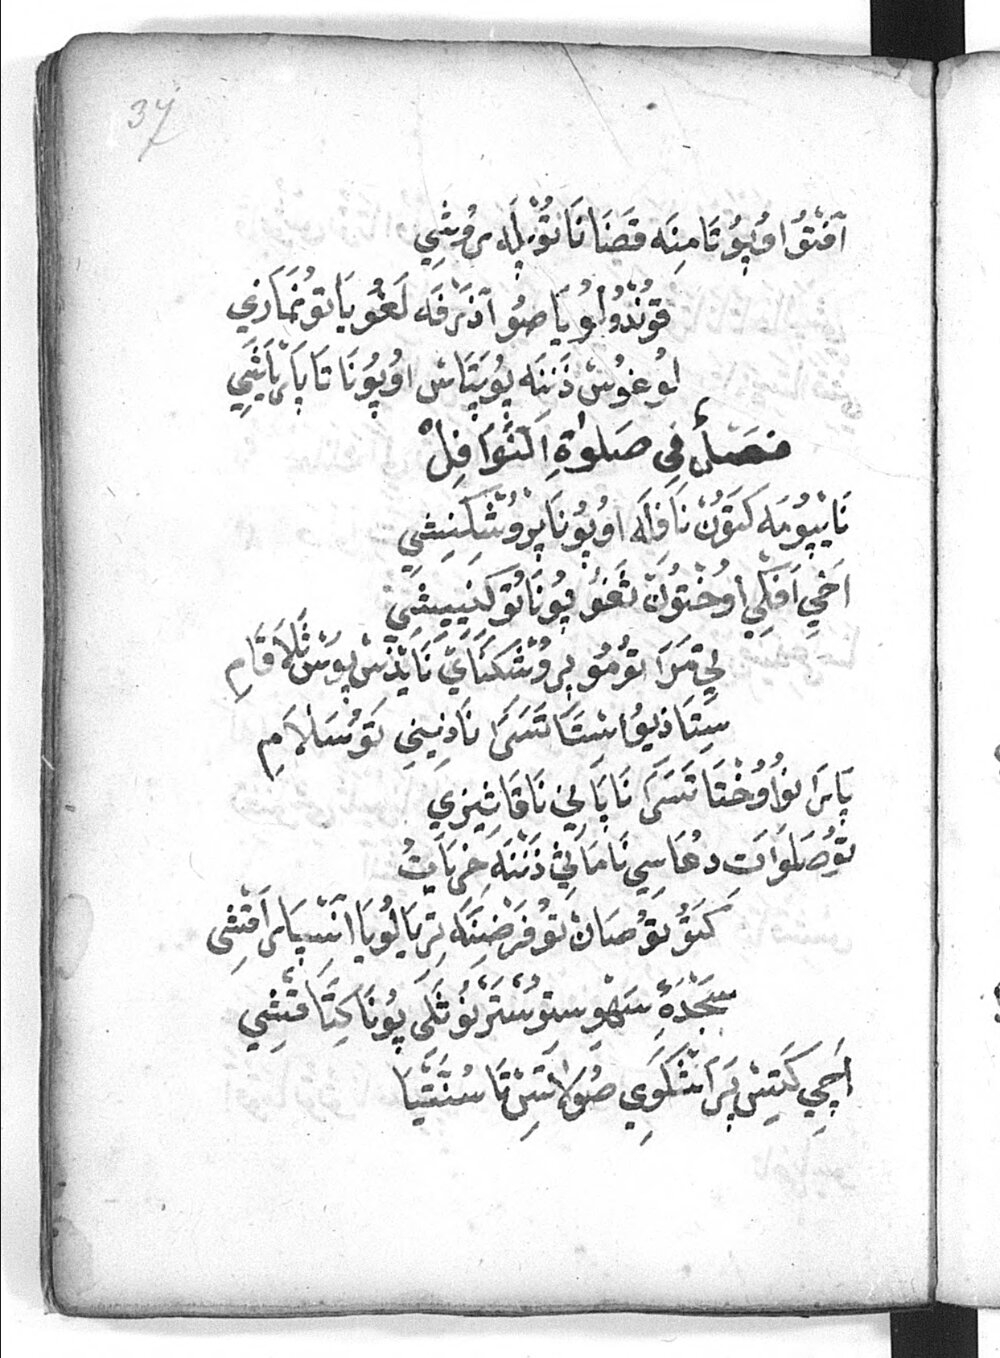 37
آفْتُو اوُپوُ تَامِنَه قَضَا نَا تُو پِلَه رُوشِي
قوُنْدُولوُيَا صوُ آذَرفَه لَغوُيَا تو نَمَازي
لوُغوُسْ ذَنِنَه پوُپَتَاسْ اوُپوُنَا تَا پَارَيَاشي
فصل في صَلوٰةِ النَّوَافِلْ
نَايپوُمَه كَتَوُنْ نَافِلَه اوُپوُنَا پِرُوشْكَنِشِي
اَخِي اَفكِي اوُخْتوُنْ ثَغوُ پوُنَا تو كَنيِيشِي
لِيْمَرَا تو مُو پِرُوشْكَنَايْ نَايْذَسْ پوُسْ ثَلاَقَامِ
سِتَا ذيوُ اسْتَا تَسَرَا نَا ذِنِينِي تَوُ سَلاَمِ
پَارَانوُ اوُخْتَا تَسَرَا نَا پَالِي نَا قَاثِيزي
تو صَلَوَاتِ دعَاسِي نَا مَا لِي ذَنِنَه خَرِيَاتُ
كَتَوُ توُصَانْ تو فَرضِنَه تِرِيَا لوُيَا انْسِپَارَ اَقْتِشِي
سَجْدَهٔ سَهْوِ سِتوُسْتَرنوُ ثَلَى پوُنَا كِتَّاقْتِشِي
اَچِي كَتِيسْ پَرَاشْكَوِي صوُلاَتَسْ تَا سُنَّتِيَا